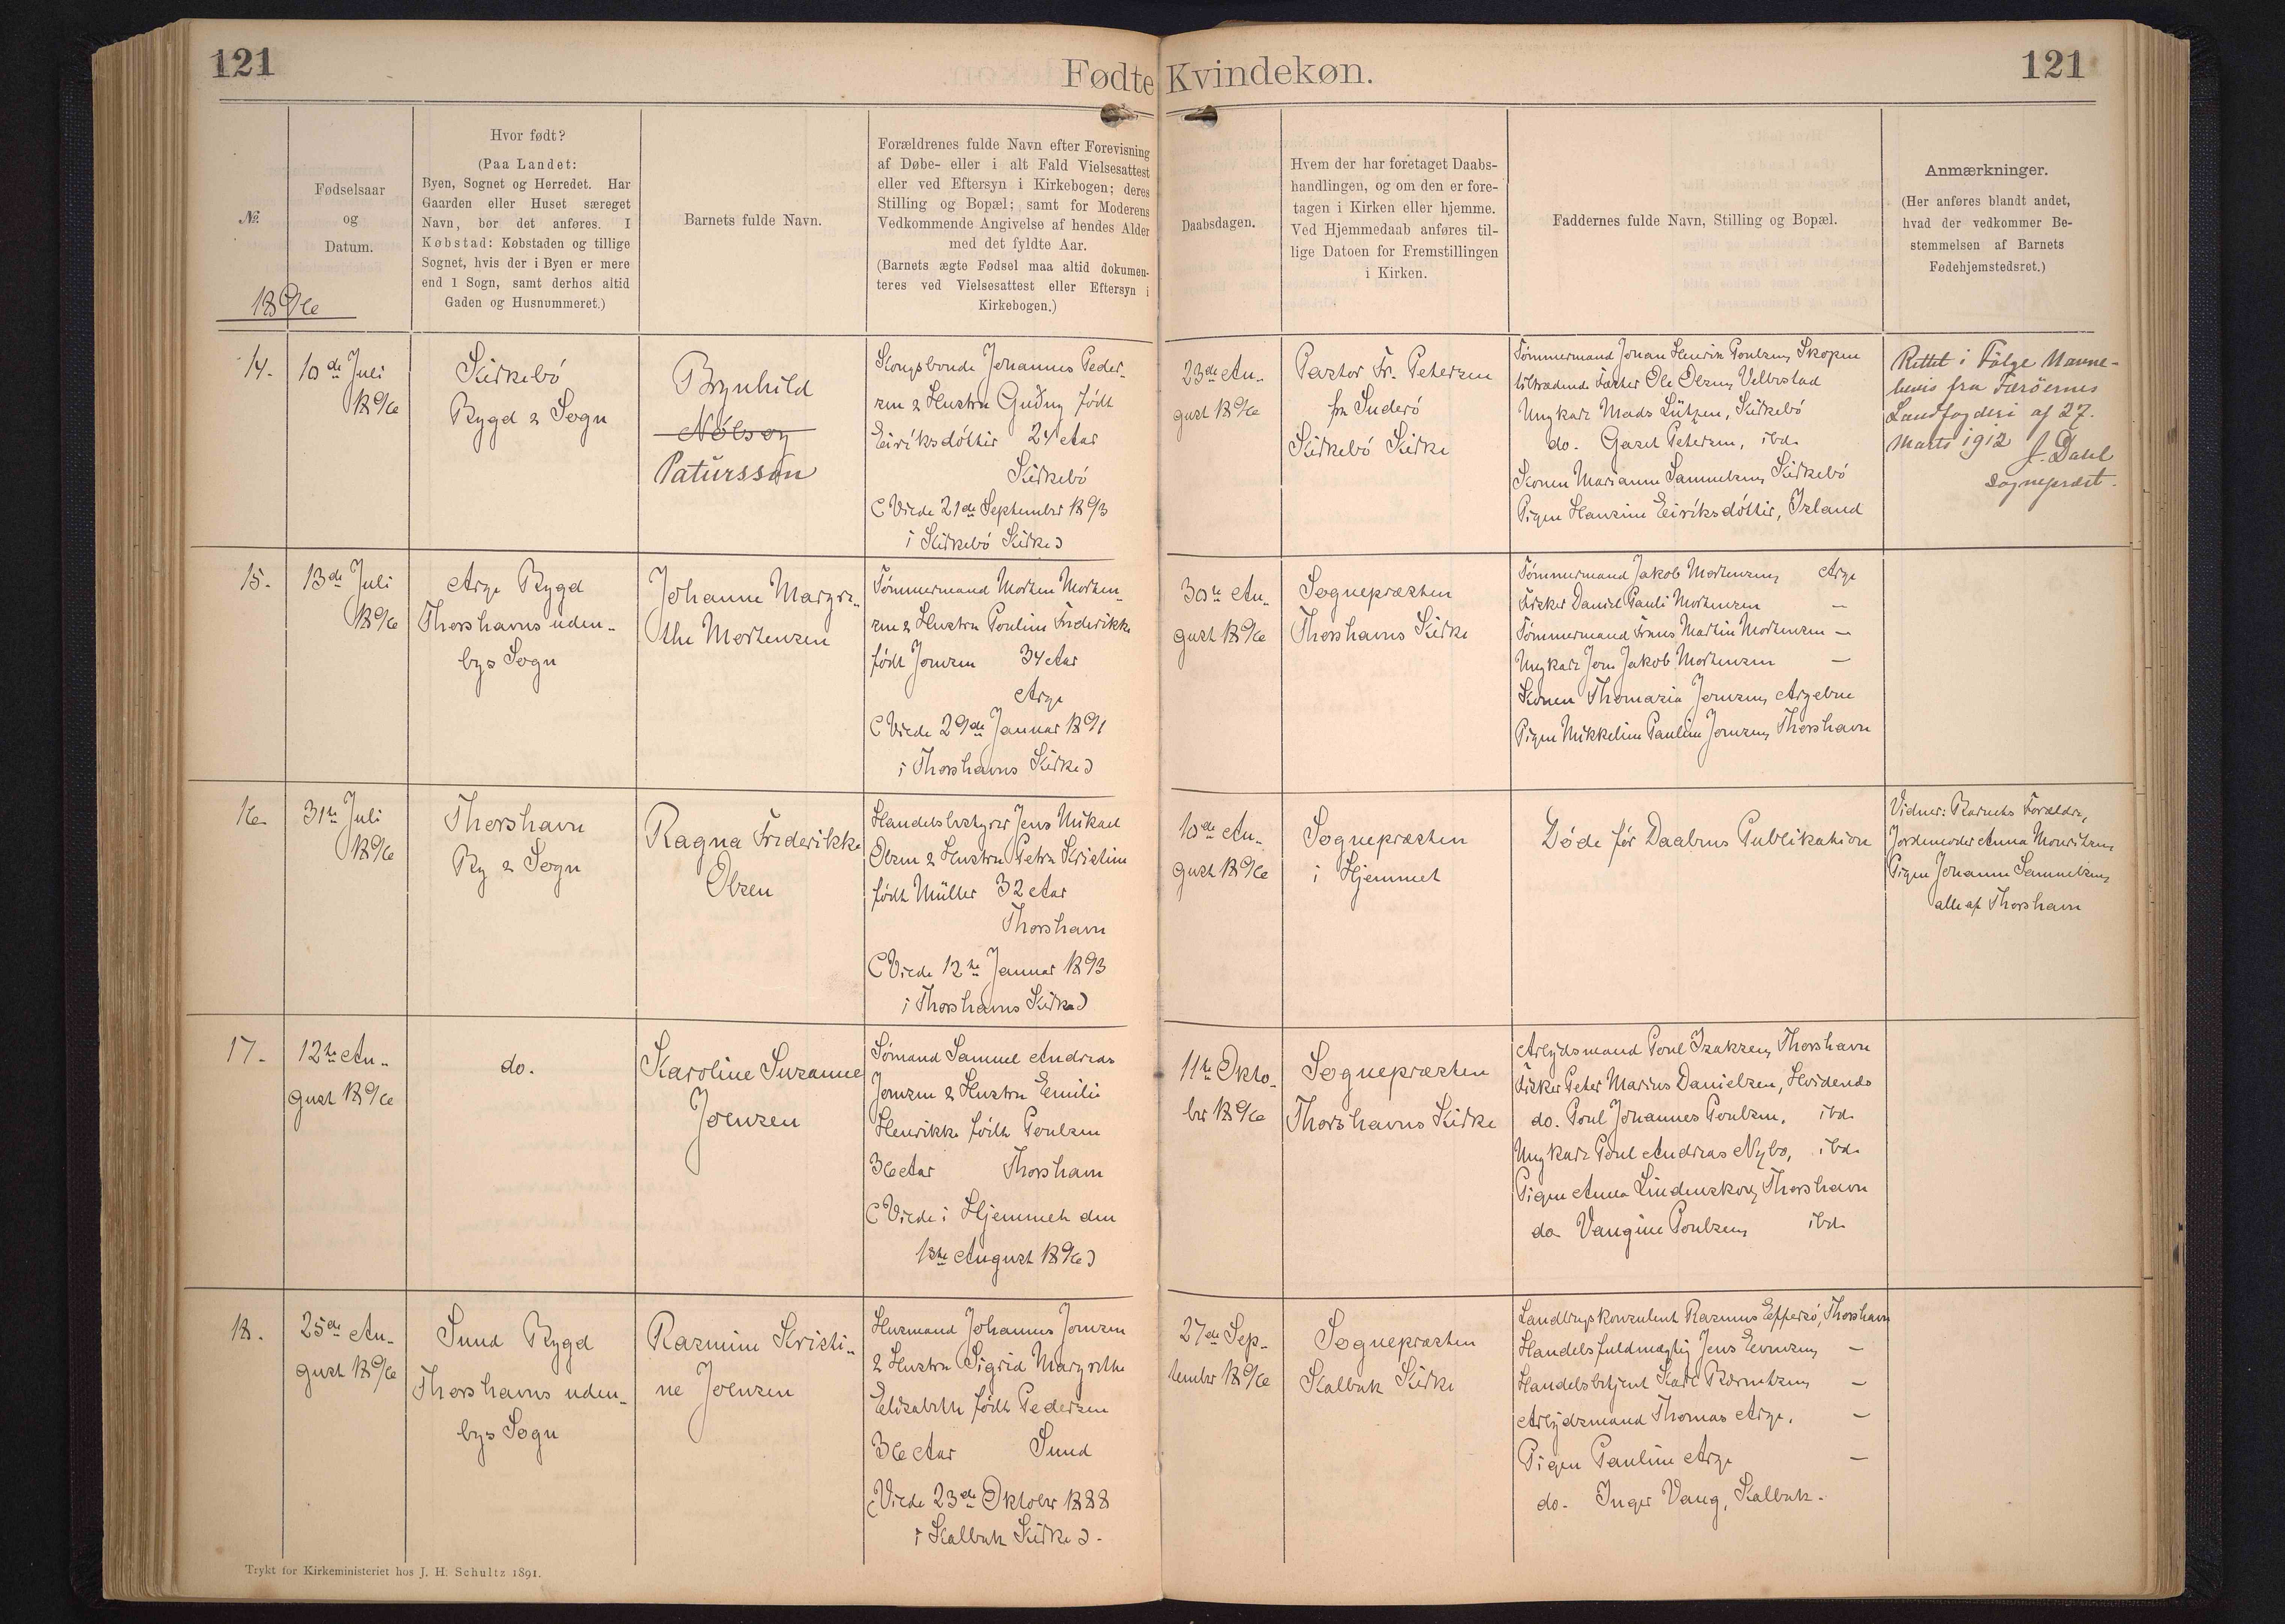 121
Fødte Kvindekøn.
121
№.
1896
Fødselsaar
og
Datum.
Hvor født?
(Paa Landet:
Byen, Sognet og Herredet. Har
Gaarden eller Huset særeget
Navn, bør det anføres. I
Købstad: Købstaden og tillige
Sognet, hvis der i Byen er mere
end 1 Sogn, samt derhos altid
Gaden og Husnummeret.)
Barnets fulde Navn.
Forældrenes fulde Navn efter Forevisning
af Døbe- eller i alt Fald Vielsesattest
eller ved Eftersyn i Kirkebogen; deres
Stilling og Bopæl; samt for Moderens
Vedkommende Angivelse af hendes Alder
med det fyldte Aar.
(Barnets ægte Fødsel maa altid dokumen-
teres ved Vielsesattest eller Eftersyn i
Kirkebogen.)
Daabsdagen.
Hvem der har foretaget Daabs-
handlingen, og om den er fore-
tagen i Kirken eller hjemme.
Ved Hjemmedaab anføres til-
lige Datoen for Fremstillingen
i Kirken.
Faddernes fulde Navn, Stilling og Bopæl.
Anmærkninger.
(Her anføres blandt andet,
hvad der vedkommer Be-
stemmelsen af Barnets
Fødehjemstedsret.)
14.
10de Juli
1896
Kirkebö
Bygd & Sogn
Brynhild
Nólsoy
Patursson
Kongsbonde Johannes Peder-
sen & Hustru Guðny født
Eiriksdóttir 24 Aar
Kirkebö
(Viede 21de September 1893
i Kirkebö Kirke)
23de Au-
gust 1896
Pastor Fr. Petersen
fra Suderö
Kirkebö Kirke
Tömmermand Johan Henrik Poulsen, Skopen
tiltrædende Fæster Ole Olsen, Velbestad
Ungkarl Mads Lützen, Kirkebö
do. Gazet Petersen, ibd.
Konen Marianne Samuelsen, Kirkebö
Pigen Hansine Eiríksdóttir, Island
Rettet i Fölge Navne-
bevis fra Færöernes
Landfogderi af 27.
Marts 1912 J. Dahl
Sognepræst.
15.
13de Juli
1896
Arge Bygd
Thorshavns uden-
bys Sogn
Johanne Margre-
the Mortensen
Tömmermand Morten Morten-
sen & Hustru Pouline Frederikke
født Joensen 34 Aar
Arge
(Viede 29de Januar 1891
i Thorshavns Kirke)
30te Au-
gust 1896
Sognepræsten
Thorshavns Kirke
Tömmermand Jakob Mortensen, Arge
Fisker Daniel Pauli Mortensen —
Tömmermand Frans Martin Mortensen —
Ungkarl Jens Jakob Mortensen —
Konen Thomasia Joensen, Argebne
Pigen Mikkeline Pauline Joensen, Thorshavn
16.
31te Juli
1896
Thorshavn
By & Sogn
Ragna Frederikke
Olsen
Handelsbestyrer Jens Mikael
Olsen & Hustru Petra Kristine
født Müller 32 Aar
Thorshavn
(Viede 12te Januar 1893
i Thorshavns Kirke)
10de Au-
gust 1896
Sognepræsten
i Hjemmet
Döde för Daabens Publikation
Vidner: Barnets Forældre,
Jordemoder Anna Mouritsen,
Pigen Johanne Samuelsen,
alle af Thorshavn
17.
12te Au-
gust 1896
do.
Karoline Susanne
Joensen
Sömand Samuel Andreas
Joensen & Hustru Emilie
Henrikke födt Poulsen
36 Aar Thorshavn
(Viede i Hjemmet den
13te August 1896)
11te Okto-
ber 1896
Sognepræsten
Thorshavns Kirke
Arbejdsmand Poul Isaksen, Thorshavn
Fisker Peter Marius Danielsen, Hvidenæs
do. Poul Johannes Poulsen, ibd.
Ungkarl Poul Andreas Nybo, ibd.
Pigen Anna Lindenskov, Thorshavn
do. Vangine Poulsen, ibd.
18.
25de Au-
gust 1896
Sund Bygd
Thorshavns uden-
bys Sogn
Rasmine Kristi-
ne Joensen
Husmand Johannes Joensen
& Hustru Sigrid Margrethe
Elisabeth født Pedersen
36 Aar Sund
(Viede 23de Oktober 1888
i Kalbak Kirke).
27de Sep-
tember 1896
Sognepræsten
Kalbak Kirke
Landbrugskonsulent Rasmus Effersö, Thorshavn
Handelsfuldmægtig Jens Evensen, —
Handelsbetjent Karl Bærentsen, —
Arbejdsmand Thomas Arge, —
Pigen Pauline Arge —
do. Inger Vang, Kalbak.
Trykt for Kirkeministeriet hos J. H. Schultz 1891.